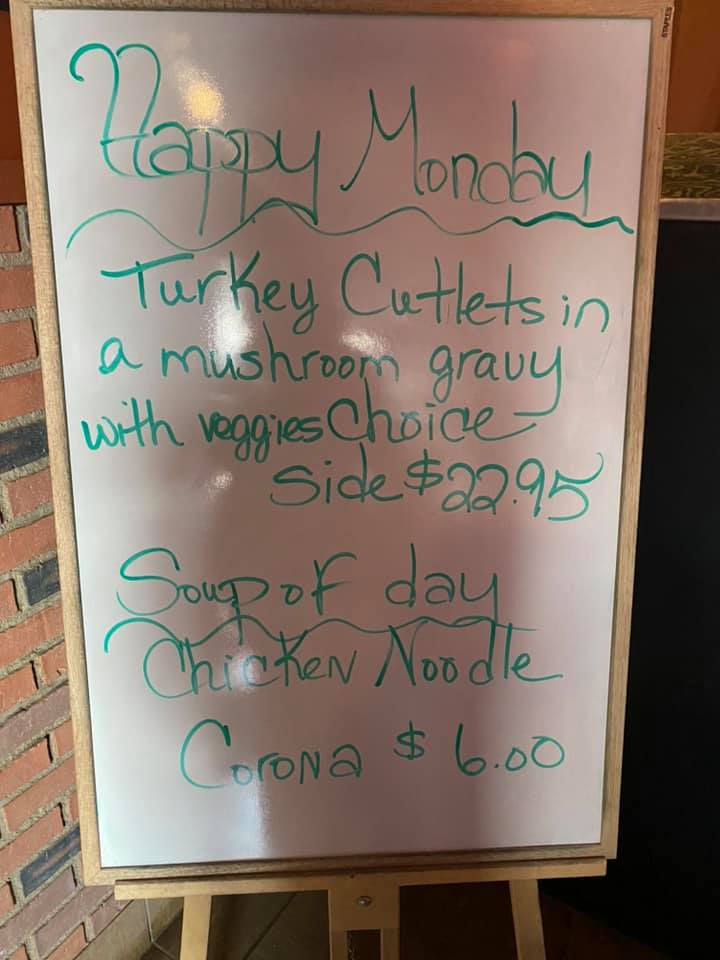 Happy Monday
Turkey Cutlets in
a mushroom gravy
with veggies Choice
Side $22.95
Soup of day
Chicken Noodle
Corona $ 6.00
STAPLES